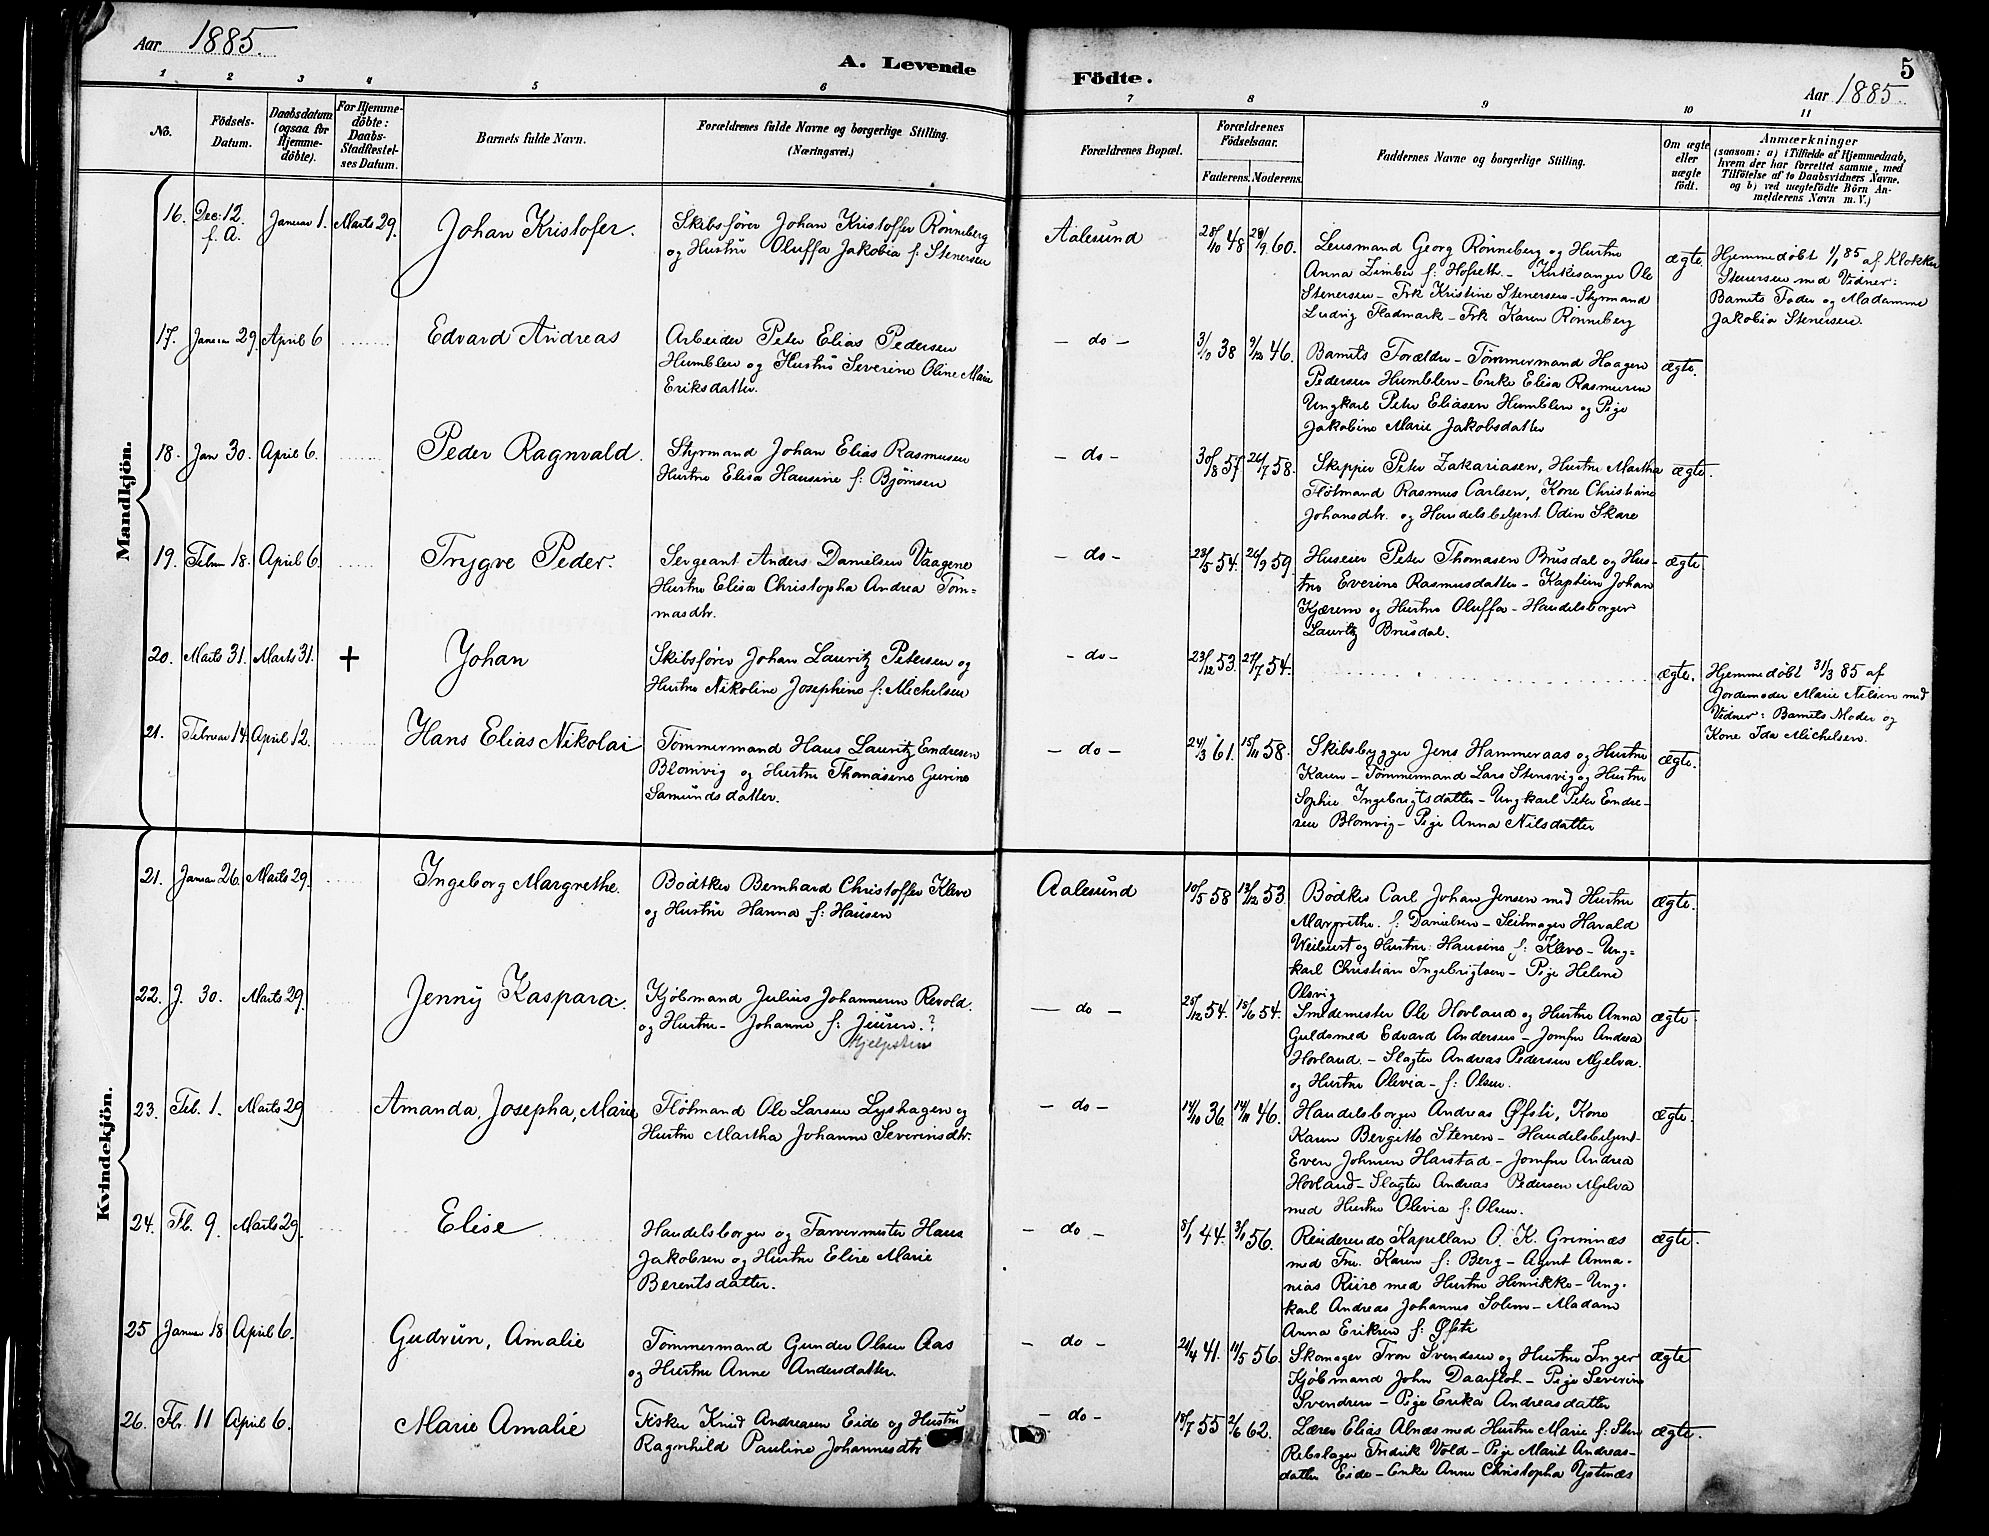 Aar 1885.
A. Levende
Födte.
5
Aar 1885.
1 2 3 4 5 6 7 8 9 10 11
No.
Födsels-Datum.
Daabsdatum (ogsaa for Hjemme-döbte).
For Hjemme-döbte: Daabs-Stadfæstel-ses Datum.
Barnets fulde Navn.
Forældrenes fulde Navne og borgerlige Stilling.
(Næringsvei.)
Forældrenes Bopæl.
Forældrenes Födselsaar.
Faderens. Moderens.
Faddernes Navne og borgerlige Stilling.
Om ægte eller uægte födt.
Anmærkninger
(saasom: a) i Tilfælde af Hjemmedaab,
hvem der har forrettet samme, med
Tilföielse af to Daabsvidners Navne.
og b) ved uægtefödte Börn An-
melderens Navn m. V.)
Mandkjön.
16. Dec: 12 f. A. Januar 1. Marts 29. Johan Kristofer.
Skibsfører Johan Kristoffer Rönneberg
og Hustru Oluffa Jakobia f: Stenersen
Aalesund 28/10 48 28/9 60.
Lensmand Georg Rönneberg og Hustru
Anna Zimber f: Hofseth. - Kirkesanger Ole
Stenersen - Frk Kristine Stenersen - Styrmand
Ludvig Fladmark - Frk Karen Rönneberg
ægte.
Hjemmedøbt 1/1 85 af Klokker
Stenersen med Vidner:
Barnets Fader og Madamme
Jakobia Stenersen.
17. Januar 29. April 6 Edvard Andreas
Arbeider Peter Elias Pedersen
Humblen og Hustru Severine Oline Marie
Eriksdatter.
- do - 3/10 38 9/12 46.
Barnets Forældre - Tømmermand Haagen
Pedersen Humblen - Enke Elisa Rasmusen
Ungkarl Peter Eliasen Humblen og Pige
Jakobine Marie Jakobsdatter
ægte.
18. Jan 30. April 6. Peder Ragnvald.
Styrmand Johan Elias Rasmusen
Hustru Elisa Hansine f: Bjørnsen
- do - 30/8 57 26/7 58.
Skipper Peter Zakariasen, Hustru Martha
Flötmand Rasmus Carlsen, Kone Christiane
Johansdtr. og Handelsbetjent Odin Skare
ægte.
19. Febru 18. April 6. Trygve Peder.
Sergeant Anders Danielsen Vaagene
Hustru Elisa Christopha Andrea Tom=
masdtr.
- do - 23/5 54. 26/9 59.
Huseier Peter Thomasen Brusdal og Hus-
tru Everine Rasmusdatter - Kaptein Johan
Kjærem og Hustru Oluffa - Handelsborger
Lauritz Brusdal.
ægte.
20. Marts 31. Marts 31. + Johan
Skibsfører Johan Lauritz Petersen og
Hustru Nikoline Josephine f: Michelsen
- do - 23/12 53. 27/7 54.
ægte.
Hjemmedøbt 31/3 85 af
Jordemoder Marie Nilsen med
Vidner: Barnets Moder og
Kone Ida Michelsen.
21. Februar 14. April 12. Hans Elias Nikolai
Tømmermand Hans Lauritz Endresen
Blomvig og Hustru Thomasine Gurine
Samundsdatter.
- do - 24/3 61. 15/11 58.
Skibsbygger Jens Hammeraas og Hustru
Karen - Tømmermand Lars Stensvig og Hustru
Sophie Ingebrigtsdatter - Ungkarl Peter Endre-
sen Blomvig - Pige Anna Nilsdatter
ægte.
Kvindekjön.
21. Januar 26. Marts 29. Ingeborg Margrethe.
Bødtker Bernhard Christoffer Klevo
og Hustru Hanna f: Hansen
Aalesund 10/5 58 13/12 53.
Bødker Carl Johan Jensen med Hustru
Margrethe. f: Danielsen - Seilmager Harald
og Hustru: Hansine f: Klevo - Ung=
karl Christian Ingebrigtsen - Pige Helene
Olsvig
ægte.
22. J. 30. Marts 29. Jenny Kaspara.
Kjøbmand Julius Johannesen Revold.
og Hustru - Johanne f: Jensen.?
- do - 25/12 54. 15/6 54.
Smedemester Ole Hovland og Hustru Anna
Guldsmed Edvard Andersen - Jomfru Andrea
Hovland. - Slagter Andreas Pedersen Mjelva
og Hustru Olivia - f: Olsen.
ægte.
23. Feb. 1. Marts 29 Amanda, Josepha, Marie
Flötmand Ole Larsen Lyshagen og
Hustru Martha Johanne Severinsdtr.
- do - 14/10 36 14/11 46.
Handelsborger Andreas Øfsti, Kone
Karen Bergitte Stenen - Handelsbetjent
Even Johnsen Harstad - Jomfru Andrea
Hovland - Slagter Andreas Pedersen Mjelva
med Hustru Olivia f: Olsen.
ægte.
24. Fb. 9. Marts 29. Elise
Handelsborger og Farvermester Hans
Jakobsen og Hustru Elise Marie
Berentsdatter.
- do - 8/1 44. 3/1 56.
Residerende Kapellan O. K. Grimnæs
med Fru. Karen f: Berg - Agent Anna-
nias Riise med Hustru Henrikke - Ung-
karl Andreas Johannes Solem - Madam
Anna Eriksen f: Øfsti
ægte.
25 Januar 18 April 6. Gudrun, Amalie
Tømmermand Gunder Olsen Aas
og Hustru Anne Andersdatter.
- do - 24/4 41. 14/5 56.
Skomager Tron Svendsen og Hustru Inger
Kjøbmand John Daarflot - Pige Severine
Svendsen - Pige Erika Andreasdatter
ægte
26. Fb. 11 April 6. Marie Amalie
Fisker Knud Andreasen Eide og Hustru
Ragnhild Pauline Johannesdtr
- do - 18/7 55 2/6 62.
Lærer Elias Alnæs med Hustru Marie f: Sten
Rebslager Fredrik Vold - Pige Marit Andreas-
datter Eide - Enke Anne Christopha Ystenæs
ægte.